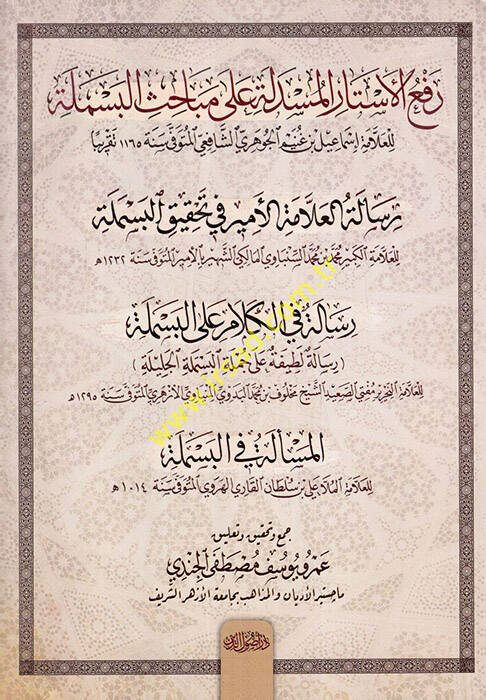 رفع الأستار المسدلة على مباحث البسملة
للعلامة إسماعيل بن غنيم الجوهري الشافعي المتوفى سنة ١١٦٥ تقريبا
رسالة العلامة الأمير في تحقيق البسملة
للعلامة الكبير محمد بن محمد السنباوي المالكي الشهير بالأمير المتوفى سنة ١٢٣٢هـ
رسالة في الكلام على البسملة
( رسالة لطيفة على جملة البسملة الجليلة )
للعلامة النحرير مفتي الصعيد الشيخ مخلوف بن محمد البدوي المنياوي الأزهري المتوفى سنة ١٢٩٥هـ
المسألة في البسملة
للعلامة الملا علي بن سلطان القاري الهروي المتوفى سنة ١٠١٤هـ
جمع وتحقيق وتعليق
عمرو يوسف مصطفى الجندي
ماجستير الأديان والمذاهب بجامعة الأزهر الشريف
دار أصول الدين
www.irsad.com.tr